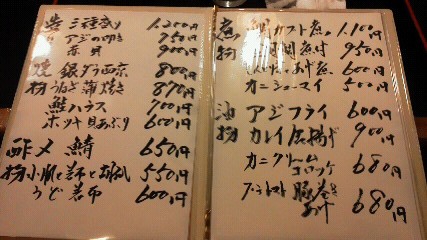 造り 三種盛り 1,200円
アジの叩き 750円
赤貝 900円
焼物 銀ダラ西京 800円
うなぎ蒲焼き 870円
鮭ハラス 700円
ホッキ貝あぶり 600円
酢〆鯖 650円
小肌と若布と胡瓜 550円
うど若布 600円
煮物 鯛カブト煮 1,100円
煮付 950円
あげ煮 600円
カニシューマイ 500円
油物 アジフライ 600円
カレイ唐揚げ 900円
カニクリームコロッケ 680円
トマト豚巻きあげ 680円